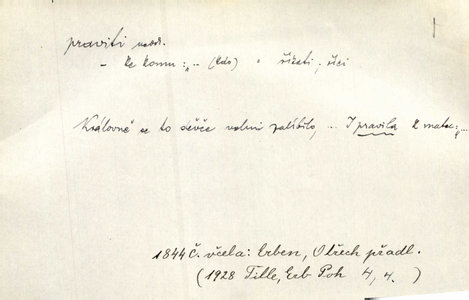 praviti nedok.
– ke komu: „… (kdo) = říkati, říci
Královně se to děvče velmi zalíbilo, … I pravila k matce: „…
1844 Č. včela: Erben, O třech přadl.
(1928 Tille, Erb Poh 4, 4. )